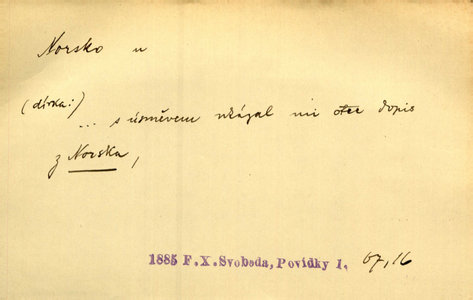 Norsko n
(dívka:)
... s úsměvem ukázal mi otec dopis
z Norska,
1885 F.X.Svoboda, Povídky 1. 67,16